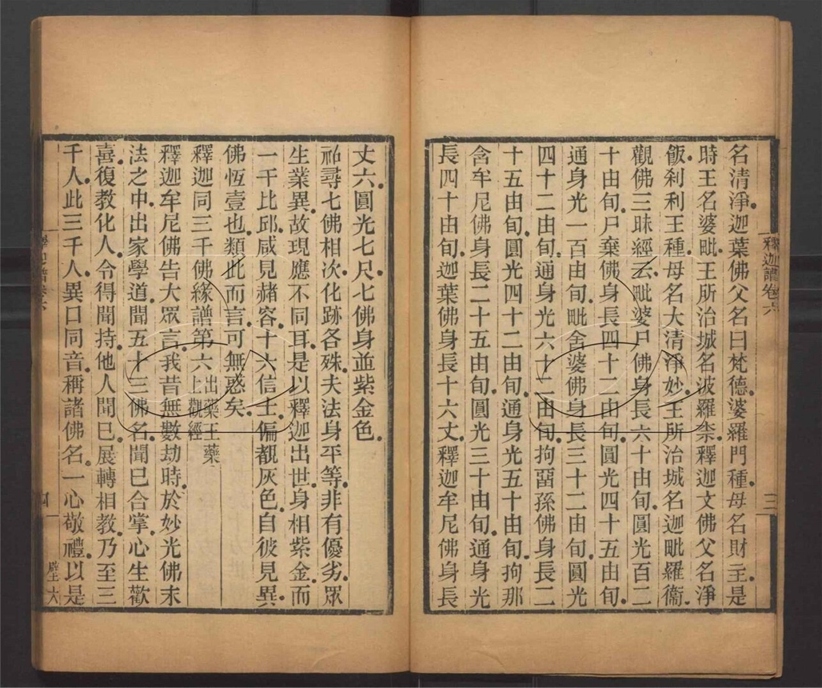 釋迦譜卷六
三
名清淨迦葉佛父名曰梵德婆羅門種母名財主是
時王名婆毗王所治城名波羅柰釋迦文佛父名淨
飯刹利王種母名大清淨妙王所治城名迦毗羅衞
觀佛三昧經云毗婆尸佛身長六十由旬圓光百二
十由旬尸棄佛身長四十二由旬圓光四十五由旬
通身光一百由旬毗舍婆佛身長三十二由旬圓光
四十二由旬通身光六十二由旬拘畱孫佛身長二
十五由旬圓光四十二由旬通身光五十由旬拘那
含牟尼佛身長二十五由旬圓光三十由旬通身光
長四十由旬迦葉佛身長十六丈釋迦牟尼佛身長
丈六圓光七尺七佛身並紫金色
祐尋七佛相次化跡各殊夫法身平等非有優劣眾
生業異故現應不同耳是以釋迦出世身相紫金而
一千比邱咸見赭容十六信士偏覩灰色自彼見異
佛恆壹也類此而言可無惑矣
釋迦同三千佛緣譜第六出藥王藥上觀經
釋迦牟尼佛告大眾言我昔無數劫時於妙光佛末
法之中出家學道聞五十三佛名聞巳合掌心生歡
喜復教化人令得聞持他人聞巳展轉相教乃至三
千人此三千人異口同音稱諸佛名一心敬禮以是
四
壁六